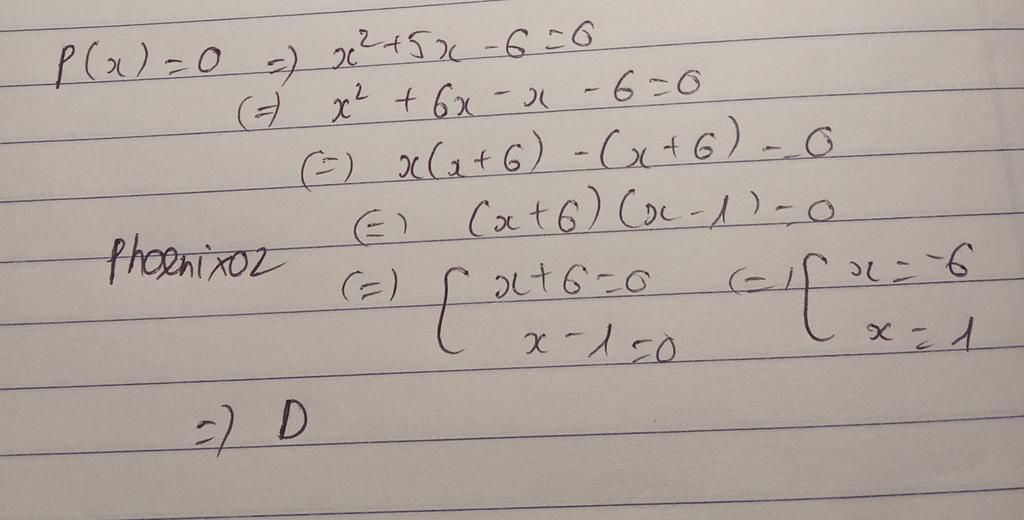 P(x) = 0 => x² + 5x - 6 = 0
(=) x² + 6x - x - 6 = 0
(=) x(x+6) - (x+6) = 0
(=) (x+6)(x-1) = 0
Phoenixoz
(=) { x+6=0 (=) { x = -6
x-1=0 x = 1
=) D